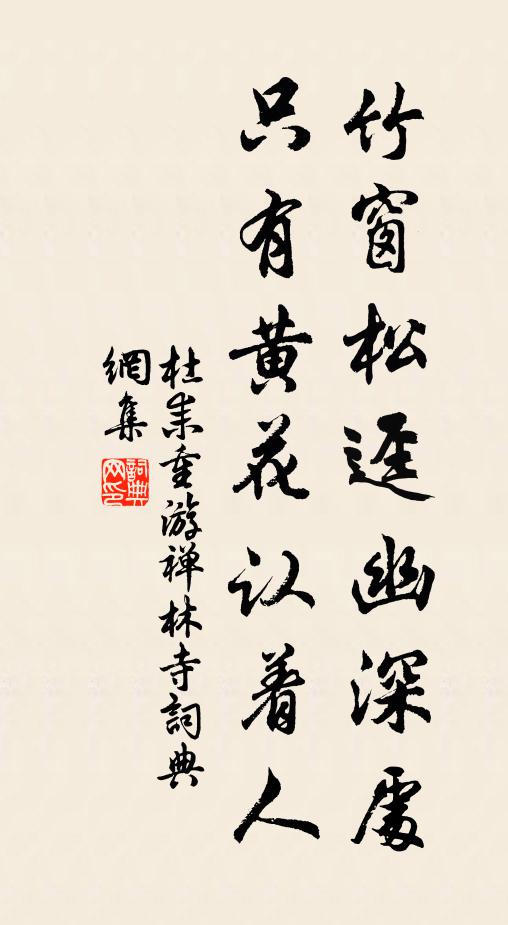 竹窗松迳幽深處
只有黄花认着人
杜耒重游禅林寺詞典
網集
詞典网印